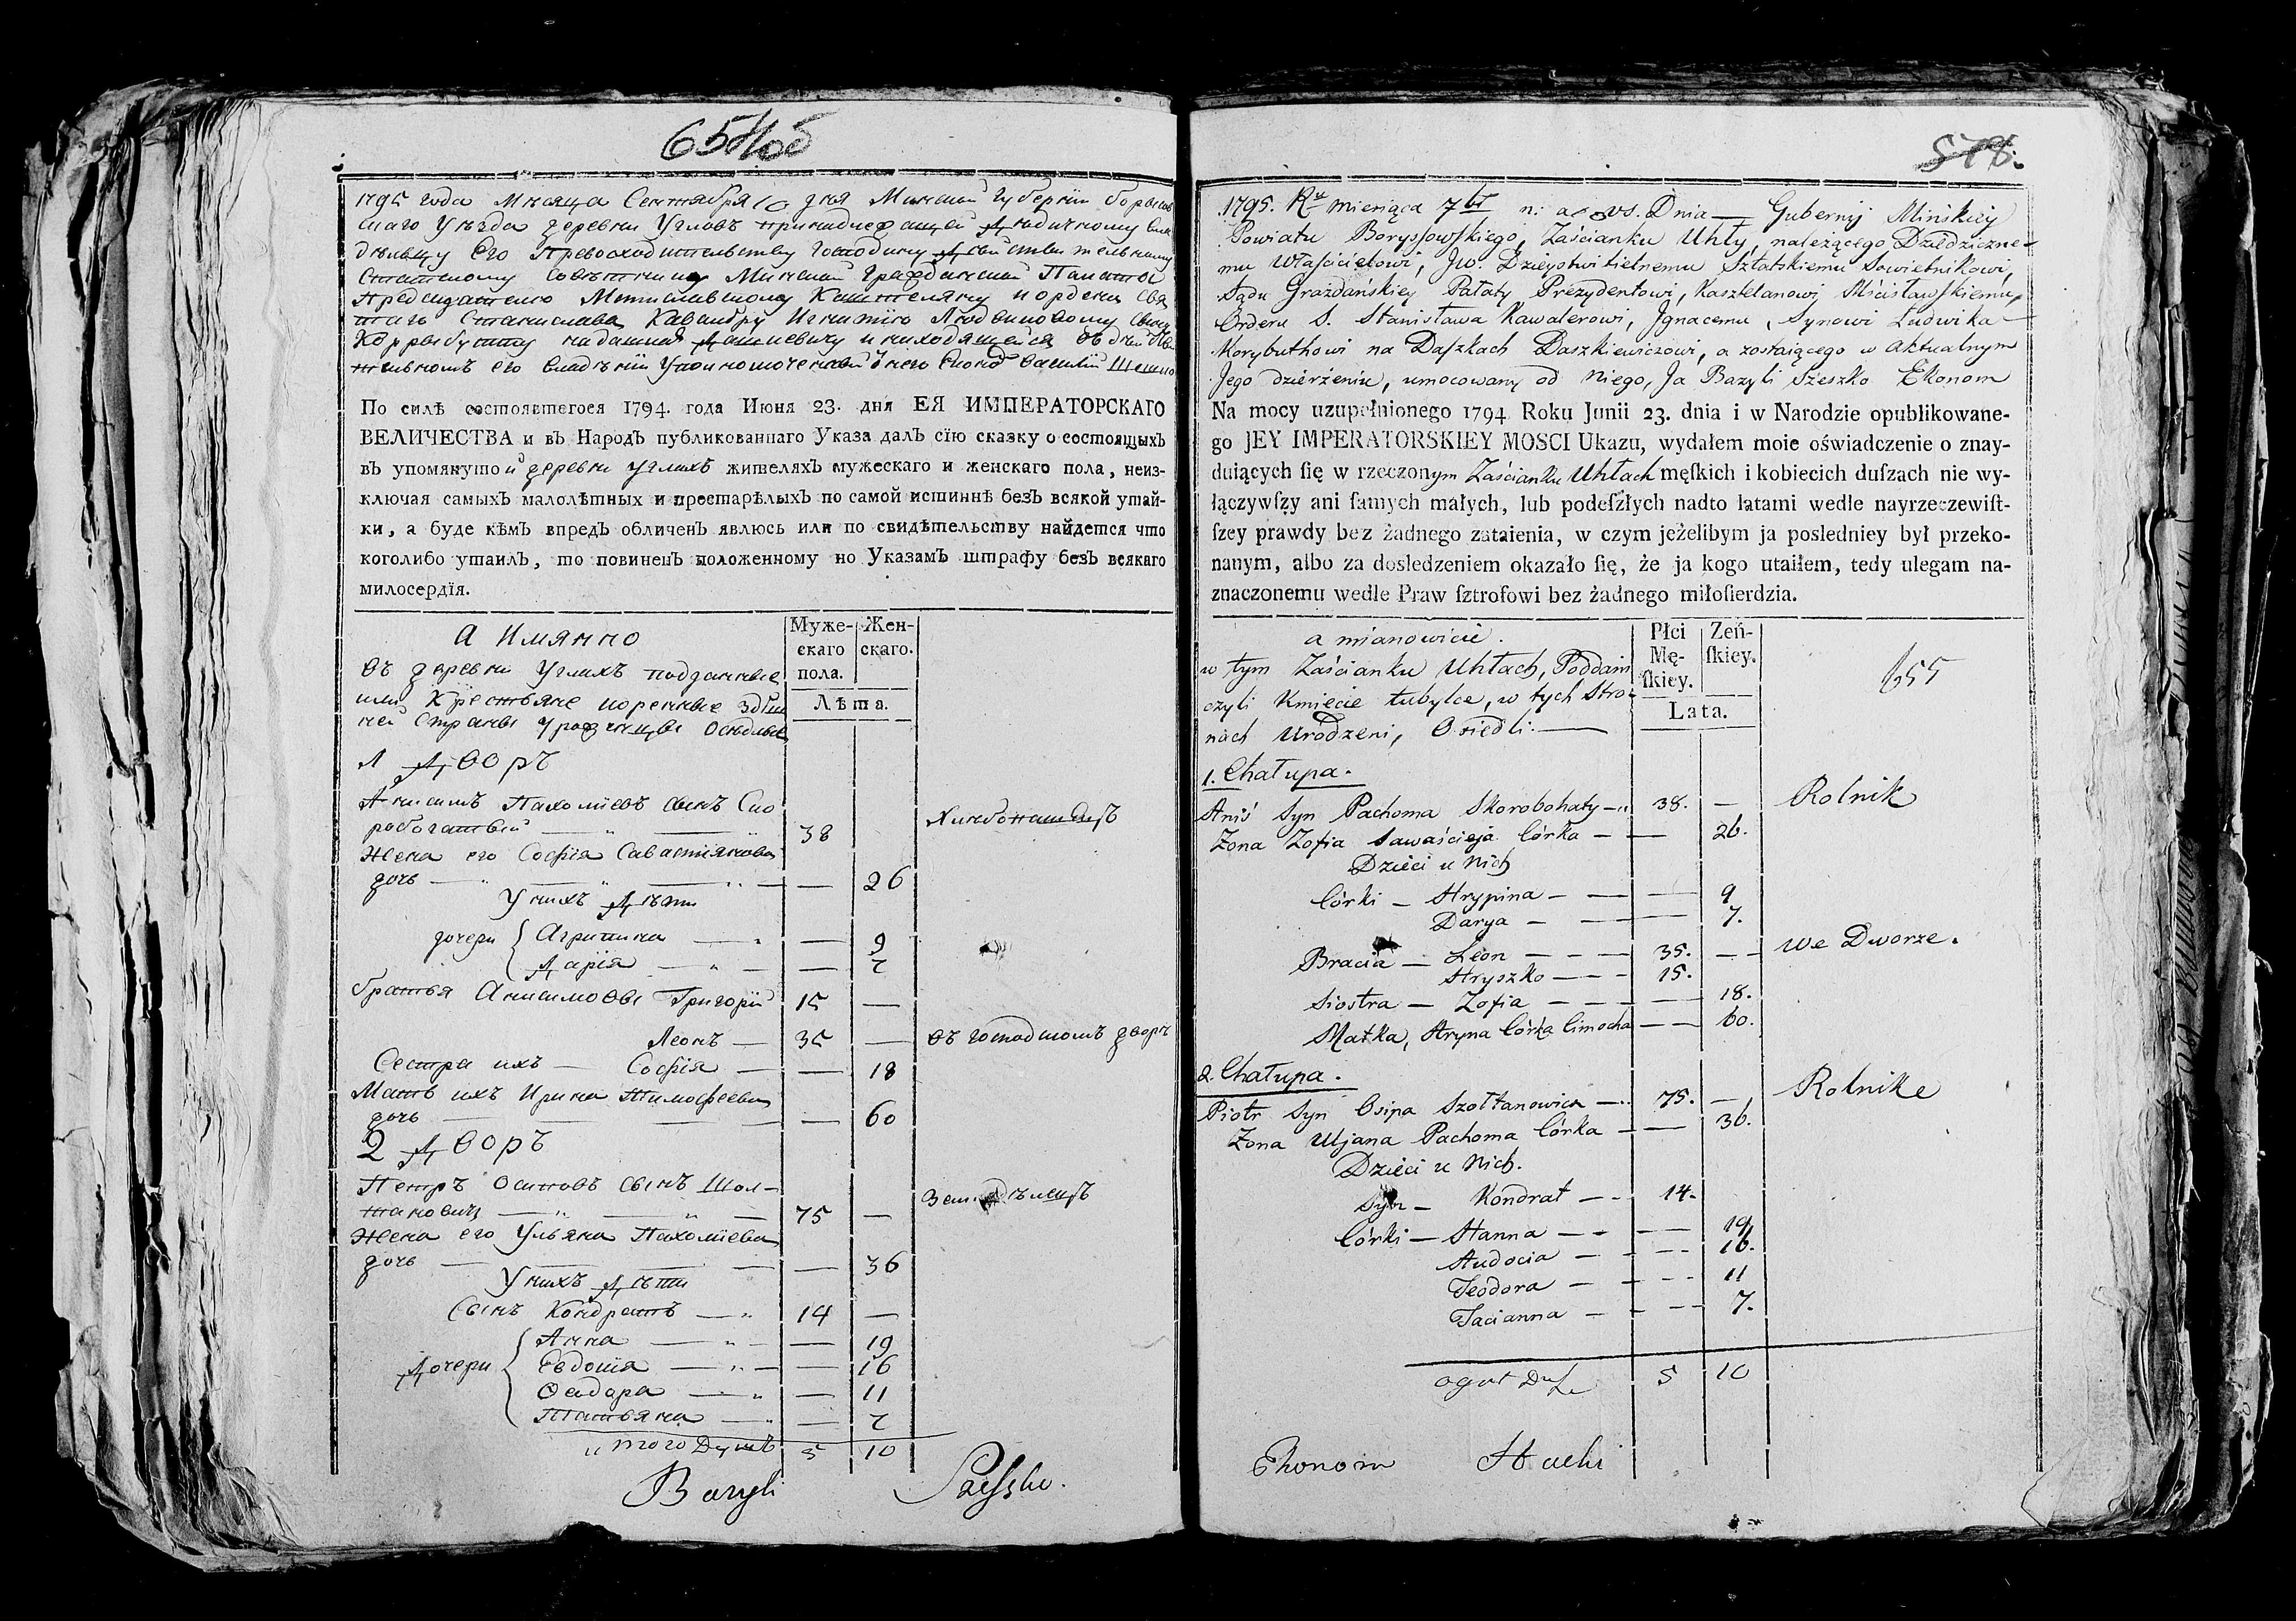 654об
1795 года Мѣсяца Сентября 10 дня Минской Губерніи Борысов
скаго Уѣзда деревни Угловъ принадлежащей Дѣдичному Вла
дѣльцу Его Превосходительству Господину Дѣйствительному
Статскому Совѣтнику Минской Гражданской Палаты
Предсѣдателю Мстиславскому Каштеляну и ордена Свя
таго Станислава Кавалеру Игнатію Людвиковому Сыну
Корыбутту Дашкевичу и находящейся въ
его владѣніи Уполномоченный Эконом Василій Шешко
По силѣ состоявшегося 1794. года Июня 23. дня ЕЯ ИМПЕРАТОРСКАГО
ВЕЛИЧЕСТВА и въ Народъ публикованнаго Указа далъ сїю сказку о состоящыхъ
въ упомянутой деревни Углахъ жителяхъ мужескаго и женскаго пола, неиз-
ключая самыхъ малолѣтных и престарѣлыхъ по самой истиннѣ безъ всякой утай-
ки, а буде кѣмъ впредъ обличенъ явлюсь или по свидѣтельству найдется что
коголибо утаилъ, то повиненъ положенному по Указамъ штрафу безъ всякаго
милосердїя.
а Имянно
Муже-
скаго
пола.
Жен-
скаго.
Лѣта.
Въ деревни Углахъ подданные
или Крестьяне коренные здѣш
ней Страны Урожинцы Осѣдлые
1 Дворъ
Анисимъ Пахоміевъ сынъ Ско
робогатый 38 Хлѣбопашецъ
Жена его Софія Савастіянова
дочь — — 26
У нихъ Дѣти
дочери Агрипина — 9
Дарія — 7
братья Анисимовы Григорій 15 —
Леонъ — 35 — Въ господскомъ дворѣ
Сестра ихъ — Софія — — 18
Мать ихъ Ирина Тимофеева
дочь — — 60
2 Дворъ
Петръ Осиповъ сынъ Шол-
тановичъ — 75 — Земледѣлецъ
Жена его Ульяна Пахоміева
дочь — — 36
У нихъ Дѣти
Сынъ Кондратъ — 14 —
Дочери Анна — — 19
Евдокія — — 16
Феодора — — 11
Татьяна — — 7
итого Душъ 5 10
Bazyli Szeszko.
578.
1795. Rku miesiąca 7br n: a 10 vs. Dnia — Gubernij Mińskiey
Powiatu Boryssowskiego, Zaścianku Uhły, należącego Dziedziczne-
mu Właścicielowi, Jw. Dzieystwitielnemu Sztatskiemu Sowietnikowi,
Sądu Grażdańskiey Pałaty Prezydentowi, Kasztelanowi Mścisławskiemu,
Orderu S. Stanisława Kawalerowi, Jgnacemu, Synowi Ludwika
Korybuthowi na Daszkach Daszkiewiczowi, a zostaiącego w aktualnym
Jego dzierżeniu, umocowany od niego, Ja Bazyli Szeszko Ekonom
Na mocy uzupełnionego 1794 Roku Junii 23. dnia i w Narodzie opublikowane-
go JEY IMPERATORSKIEY MOSCI Ukazu, wydałem moie oświadczenie o znay-
duiących ſię w rzeczonym Zaścianku Uhłach męſkich i kobiecich duſzach nie wy-
łączywſzy ani ſamych małych, lub podeſzłych nadto latami wedle nayrzeczewiſt-
ſzey prawdy bez żadnego zataienia, w czym jeżelibym ja posledniey był przeko-
nanym, albo za dosledzeniem okazało ſię, że ja kogo utaiłem, tedy ulegam na-
znaczonemu wedle Praw ſztrofowi bez żadnego miłoſierdzia.
a mianowicie.
Płci
Mę-
ſkiey.
Zeń-
ſkiey.
Lata.
655
w tym Zaścianku Uhłach, Poddani
czyli Kmiecie tubylce, w tych Stro-
nach Urodzeni, Osiedli. —
1. Chałupa.
Aniś Syn Pachoma Skorobohaty — 38. — Rolnik
Zona Zofia Sawaścieja Córka — — 26.
Dzieci u Nich
Córki — Hrypina — — 9
Darya — — 7.
Bracia — Leon — 35. — We Dworze.
Hryszko — 15.
Siostra — Zofia — — 18.
Matka, Hryna Córka Cimocha — 60.
2. Chałupa.
Piotr Syn Osipa Szołtanowicz — 75. — Rolnik
Zona Uljana Pachoma Córka — — 36.
Dzieci u Nich.
Syn — Kondrat — 14.
Córki — Hanna — — 19
Audocia — — 16.
Teodora — — 11
Tacianna — — 7.
ogół Dusz 5 10
Ekonom